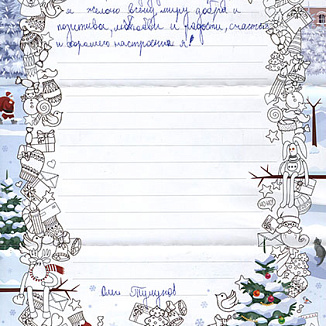 и желаю всему миру добра и
позитива, любови и радости, счастья
и хорошего настроения я!
Олег